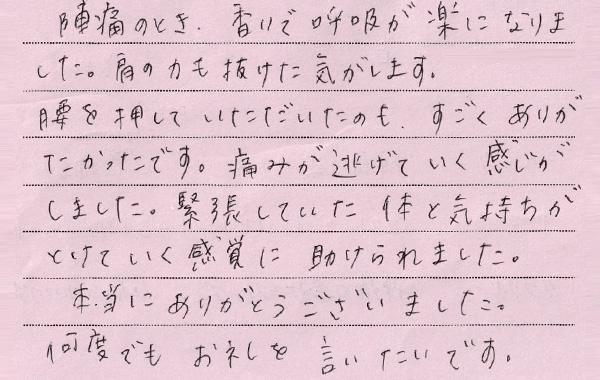 陣痛のとき、香りで呼吸が楽になりま
した。肩の力も抜けた気がします。
腰を押していただいたのも、すごくありが
たかったです。痛みが逃げていく感じが
しました。緊張していた体と気持ちが
とけていく感覚に助けられました。
本当にありがとうございましました。
何度でもお礼を言いたいです。